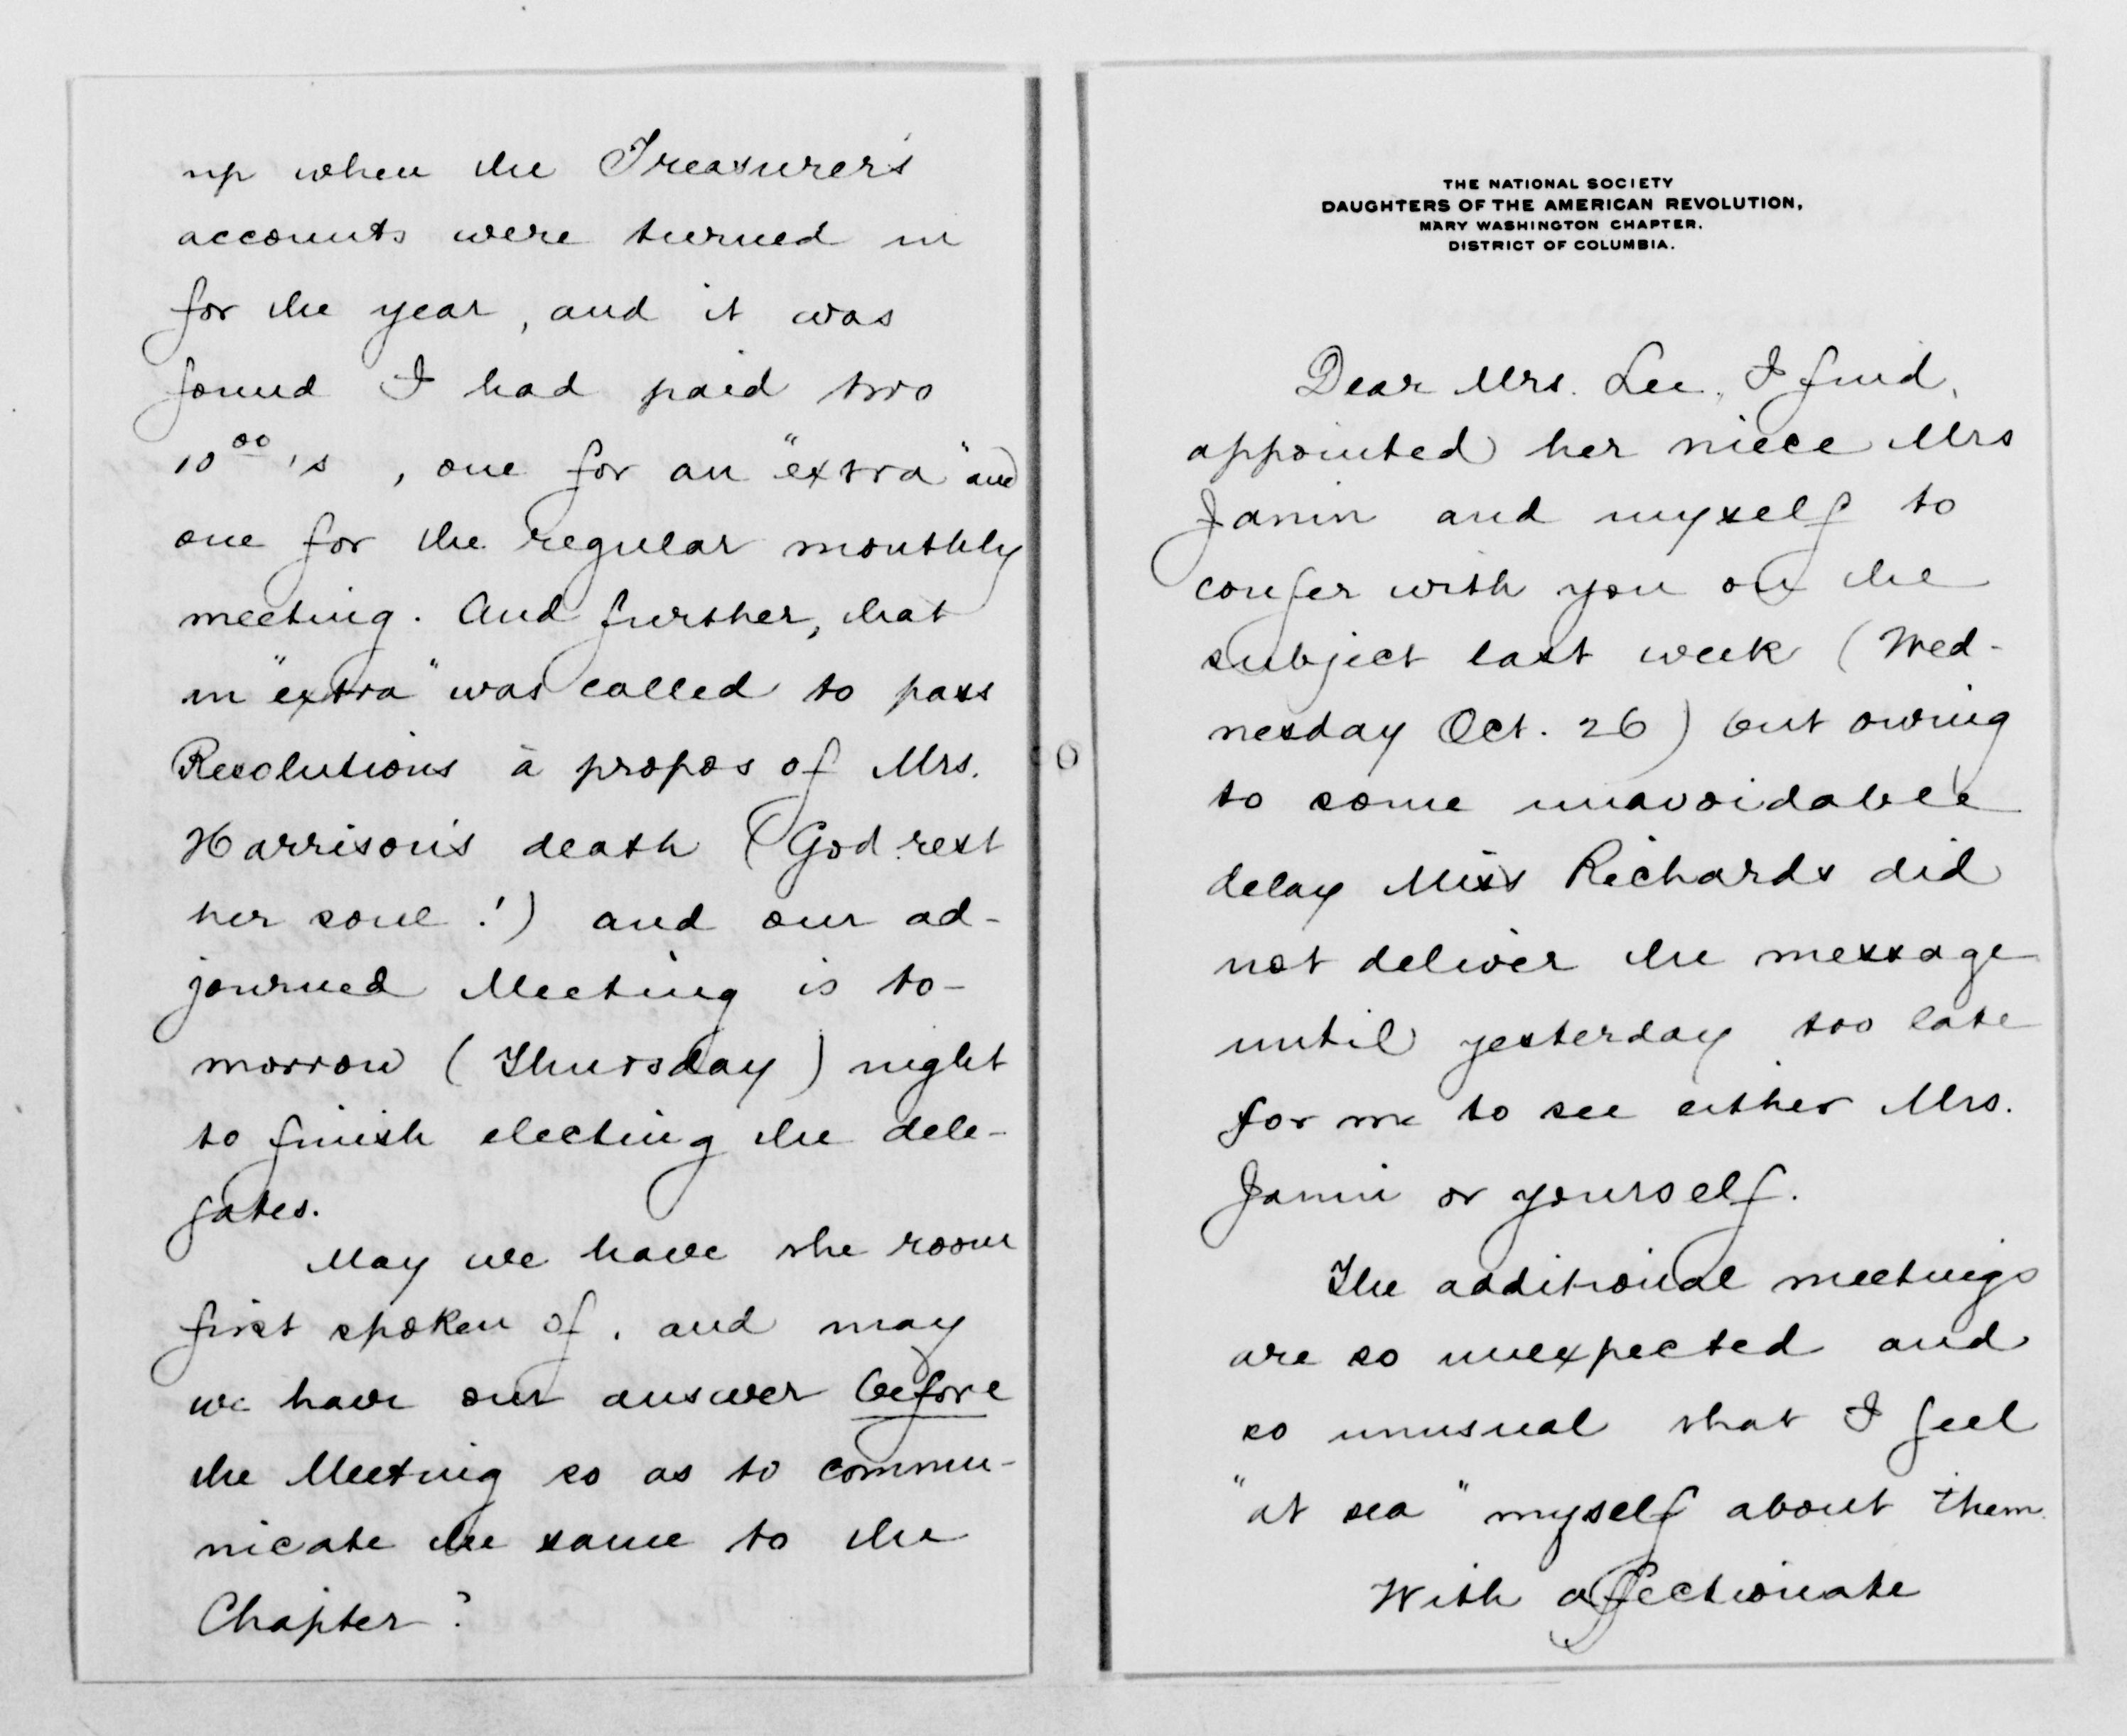 up when the Treasurer's
accounts were turned in
for the year, and it was
found I had paid two
10⁰⁰'s, one for an "extra" and
one for the regular monthly
meeting. And further, that
an "extra" was called to pass
Resolutions à propos of Mrs.
Harrison's death (God rest
her soul!) and our ad-
journed Meeting is to-
morrow (Thursday) night
to finish electing the dele-
gates.
May we have the room
first spoken of, and may
we have our answer before
the Meeting so as to commu-
nicate the same to the
Chapter?
THE NATIONAL SOCIETY
DAUGHTERS OF THE AMERICAN REVOLUTION,
MARY WASHINGTON CHAPTER.
DISTRICT OF COLUMBIA.
Dear Mrs. Lee, I find,
appointed her niece Mrs
Janin and myself to
confer with you on the
subject last week (Wed-
nesday Oct. 26) but owing
to some unavoidable
delay Miss Richards did
not deliver the message
until yesterday too late
for me to see either Mrs.
Janin or yourself.
The additional meetings
are so unexpected and
so unusual that I feel
"at sea" myself about them.
With affectionate